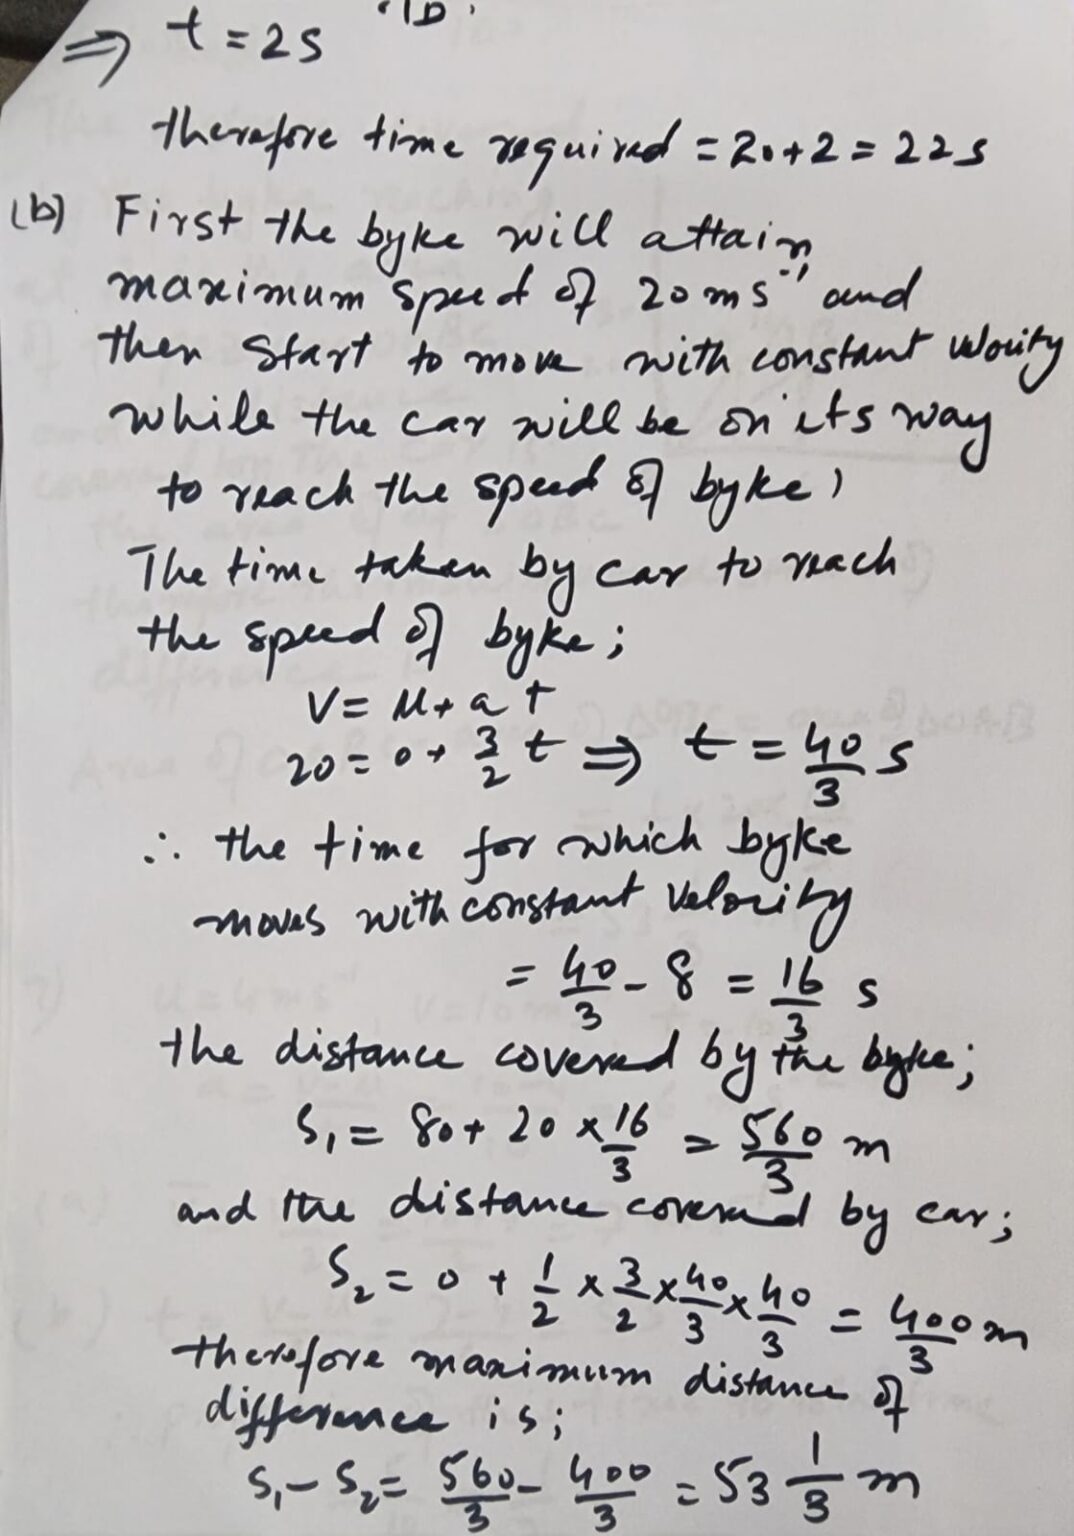 ⇒ t = 2s
therefore time required = 20+2 = 22s
(b) First the byke will attain
maximum speed of 20 ms⁻¹ and
then start to move with constant velocity
while the car will be on its way
to reach the speed of byke,
The time taken by car to reach
the speed of byke;
V = u + a t
20 = 0 + 3/2 t ⇒ t = 40/3 s
∴ the time for which byke
moves with constant velocity
= 40/3 - 8 = 16/3 s
the distance covered by the byke;
S₁ = 80 + 20 × 16/3 = 560/3 m
and the distance covered by car;
S₂ = 0 + 1/2 × 3/2 × 40/3 × 40/3 = 400/3 m
therefore maximum distance of
difference is;
S₁ - S₂ = 560/3 - 400/3 = 53 1/3 m